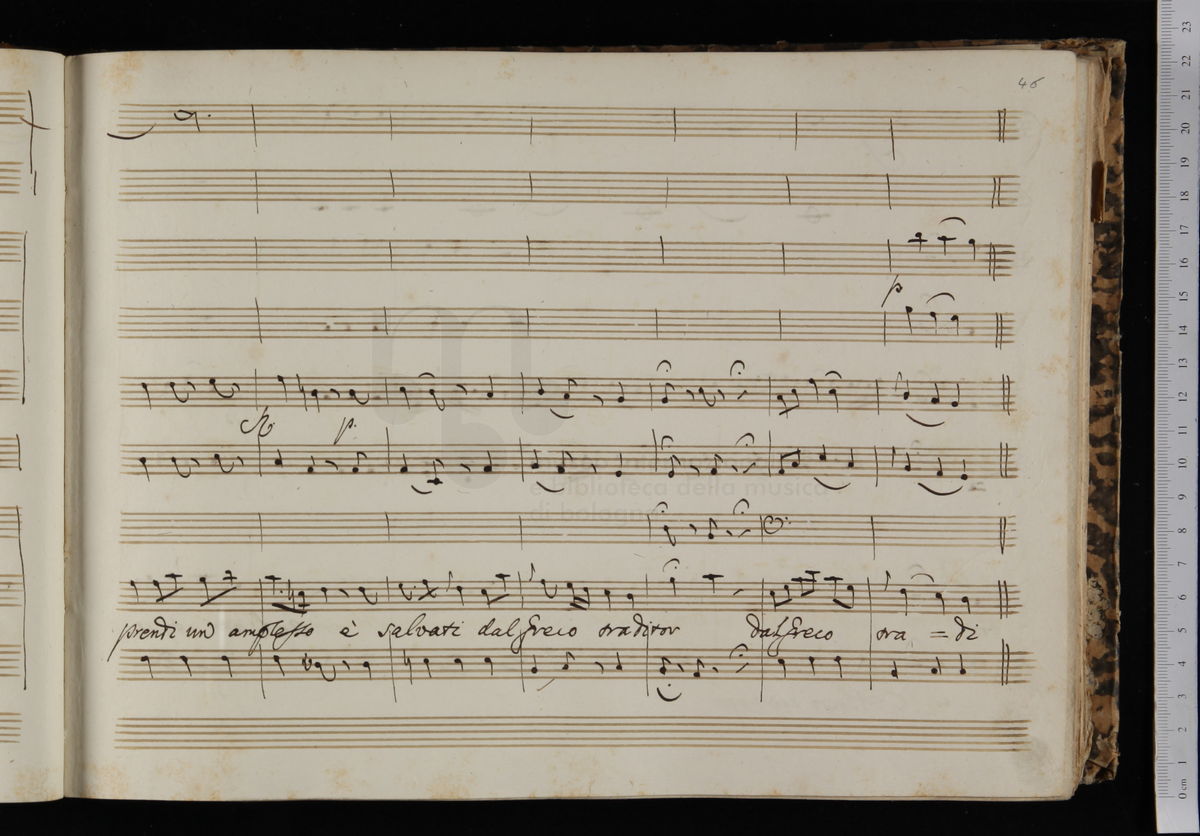 46
p
p.
prendi un amplesso è salvati dal Greco traditor dal Greco tra = di
e biblioteca della musica
di bologna
0 cm 1 2 3 4 5 6 7 8 9 10 11 12 13 14 15 16 17 18 19 20 21 22 23